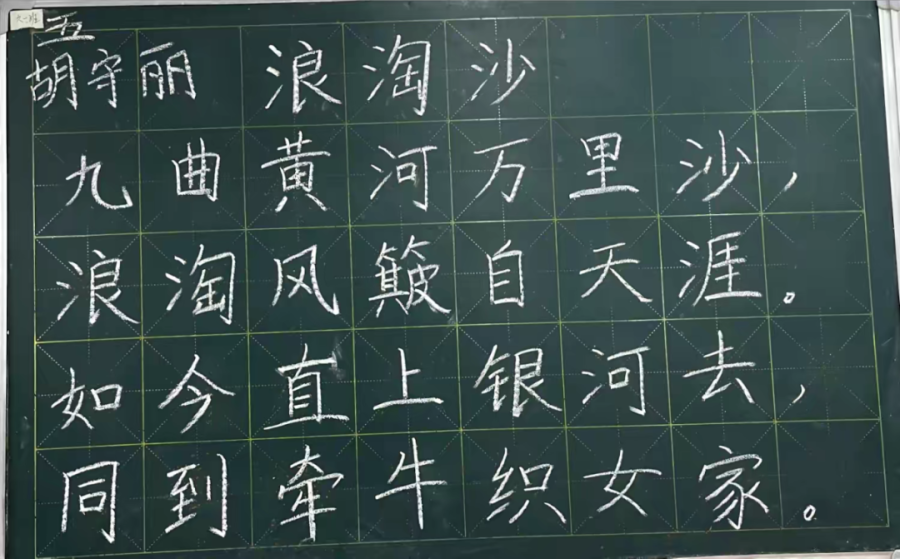 五
胡守丽 浪淘沙
九曲黄河万里沙，
浪淘风簸自天涯。
如今直上银河去，
同到牵牛织女家。